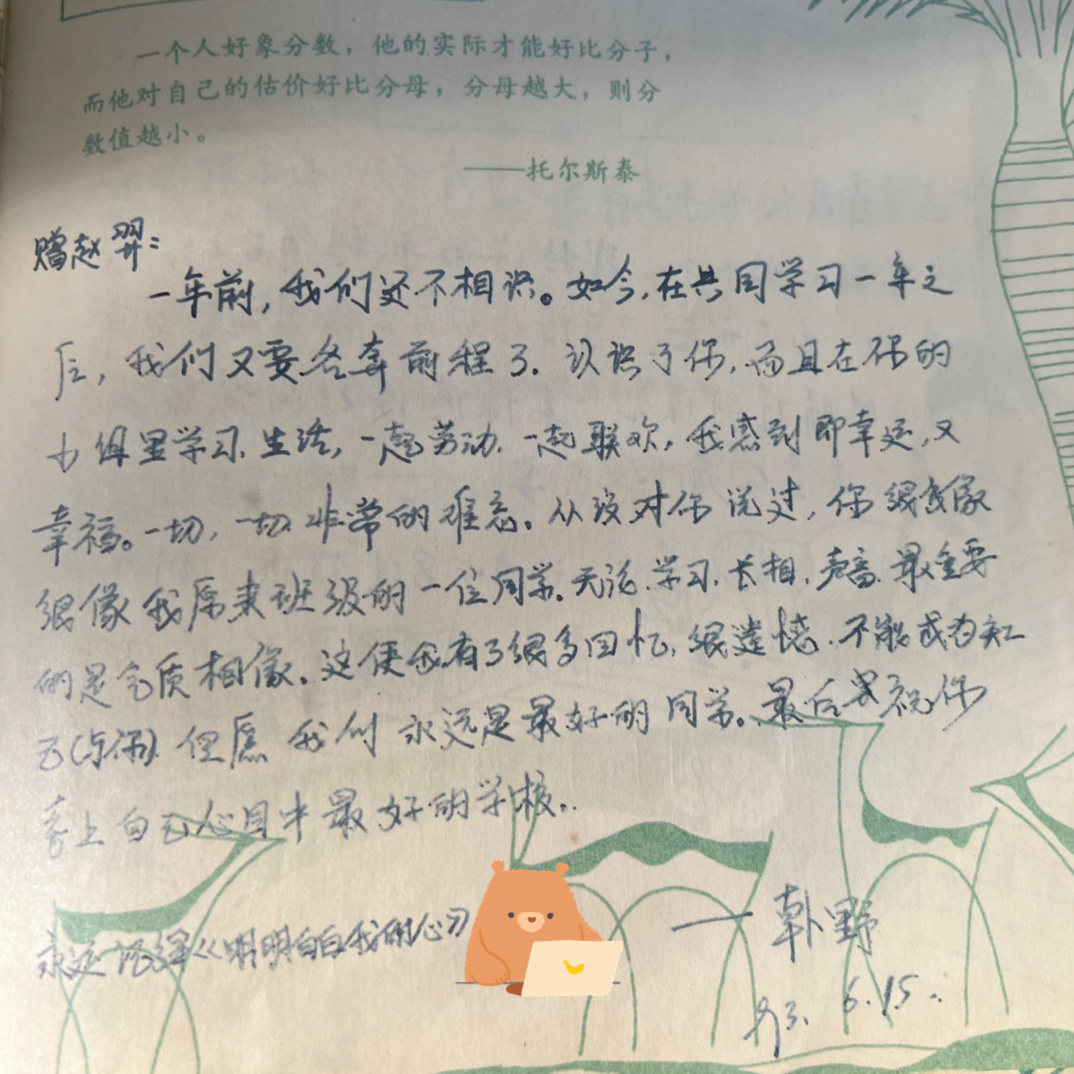 一个人好象分数，他的实际才能好比分子，
而他对自己的估价好比分母，分母越大，则分
数值越小。
——托尔斯泰
赠赵羿：
一年前，我们还不相识。如今，在共同学习一年之
后，我们又要各奔前程了。认识了你，而且在你的
小组里学习、生活，一起劳动，一起联欢，我感到即幸运，又
幸福。一切，一切非常的难忘。从没对你说过，你很象像
很像我原来班级的一位同学。无论学习，长相，声音，最重要
的是气质相像。这使我有了很多回忆，很遗憾，不能成为知
己（与你）但愿我们永远是最好的同学。最后祝你
考上自己心目中最好的学校。
永远《明明白白我的心》
——韩野
93. 6.15.